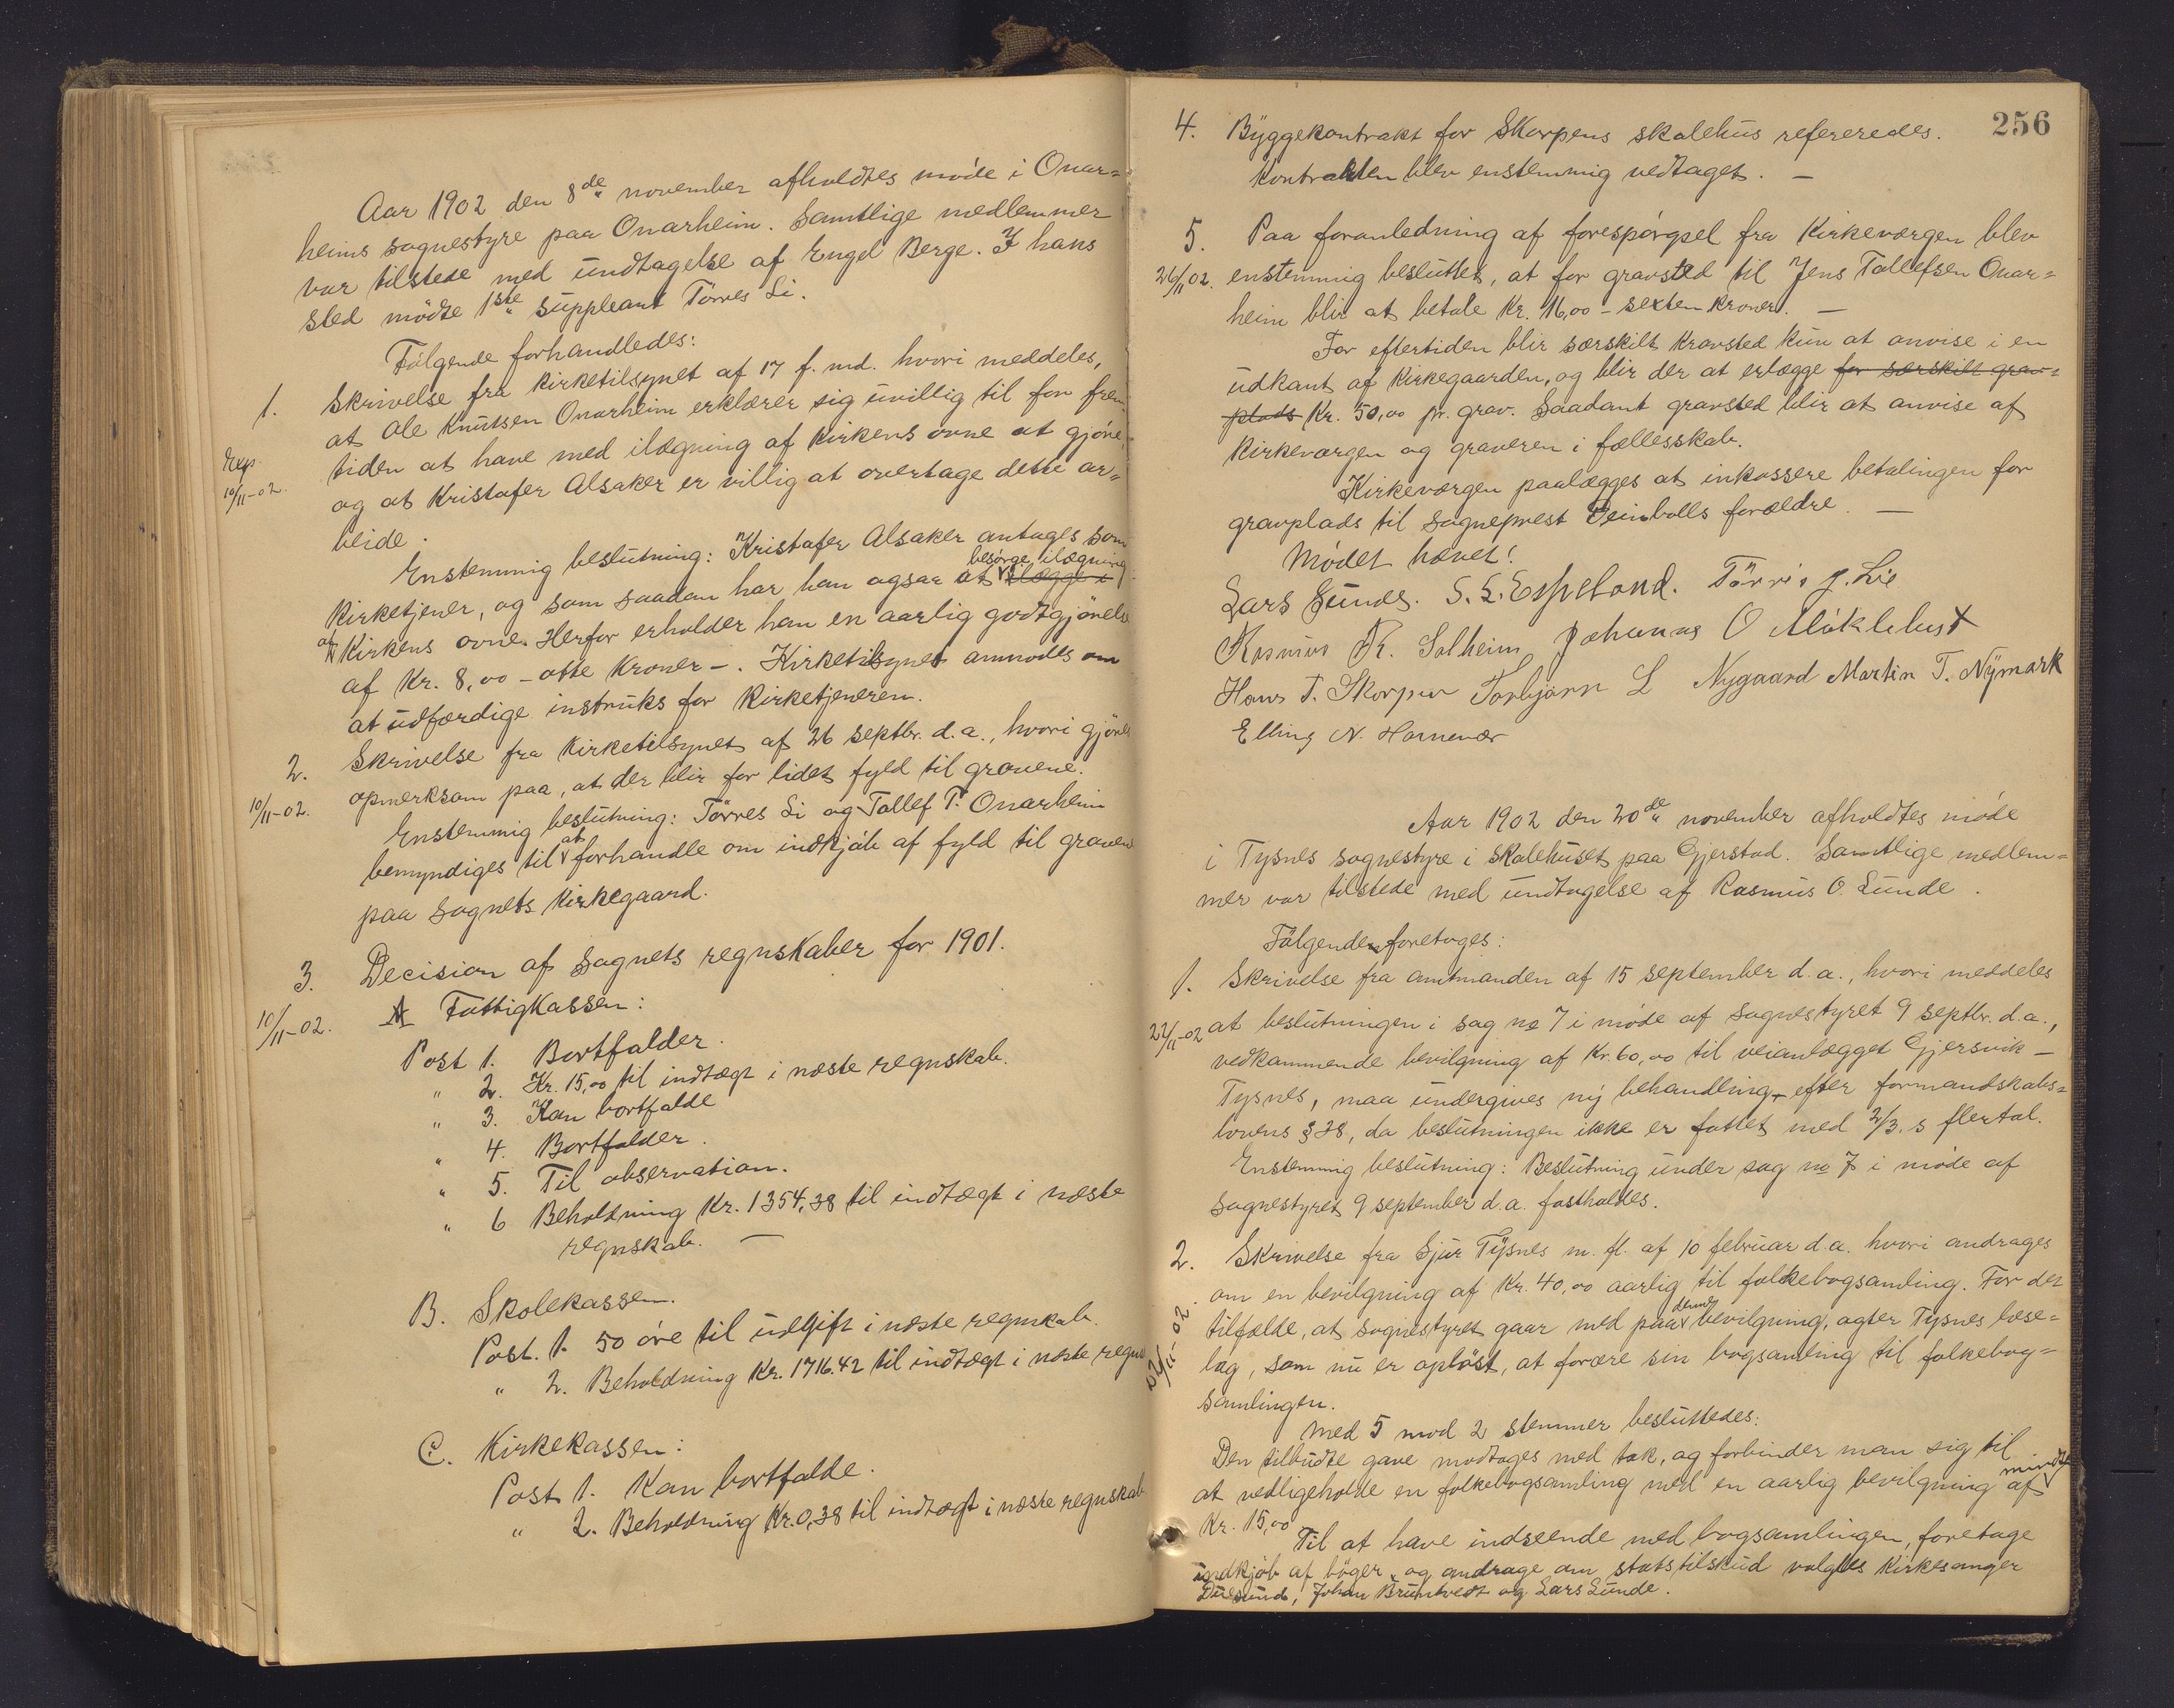 Aar 1902 den 8de november afholdtes møde i Onar=
heims sognestyre paa Onarheim. Samtlige medlemmer
var tilstede med undtagelse af Engel Berge. I hans
sted mødte 1ste suppleant Tørres Li.
Følgende forhandledes:
1. Skrivelse fra kirketilsynet af 17 f. md. hvori meddeles,
at Ole Knutsen Onarheim erklærer sig uvillig til for frem-
Exp.
10/11-02.
tiden at have med ilægning af kirkens ovne at gjøre,
og at Kristofer Alsaker er villig at overtage dette ar=
beide.
Enstemmig beslutning: Kristofer Alsaker antages som
kirketjener, og som saadan har han ogsaa at besørge ilægning ilægge i
af kirkens ovne. Herfor erholder han en aarlig godtgjørelse
af Kr. 8,00 - otte Kroner -. Kirketilsynet anmodes om
at udfærdige instruks for kirketjeneren.
2. Skrivelse fra kirketilsynet af 26 septbr. d.a., hvori gjøres
10/11-02.
opmerksom paa, at der blir for lidet fyld til gravene.
Enstemmig beslutning: Tørres Li og Tollef T. Onarheim
bemyndiges til at forhandle om indkjøb af fyld til gravene
paa sognets kirkegaard.
3. Decision af sognets regnskaber for 1901.
10/11-02.
A Fattigkassen:
Post 1. Bortfalder.
" 2. Kr. 15,00 til indtægt i næste regnskab.
" 3. Kan bortfalde
" 4. Bortfalder.
" 5. Til observation.
" 6 Beholdning Kr. 1354,38 til indtægt i næste
regnskab. —
B. Skolekassen.
Post. 1. 50 øre til udgift i næste regnskab.
" 2. Beholdning Kr. 1716.42 til indtægt i næste regns
C. Kirkekassen:
Post 1. Kan bortfalde.
" 2. Beholdning Kr. 0,38 til indtægt i næste regnskab
256
4. Byggekontrakt for Skorpens skolehus refereredes.
Kontrakten blev enstemmig vedtaget. —
5. Paa foranledning af forespørgsel fra Kirkeværgen blev
26/11 02.
enstemmig besluttet, at for gravsted til Jens Tollefsen Onar=
heim blir at betale Kr. 16,00 - sexten kroner. —
For eftertiden blir særskilt kravsted kun at anvise i en
udkant af kirkegaarden, og blir der at erlægge for særskilt grav=
plads Kr. 50,00 pr. grav. Saadant gravsted blir at anvise af
kirkeværgen og graveren i fællesskab.
Kirkeværgen paalægges at inkassere betalingen for
gravplads til sogneprest Veinbolls forældre. —
Mødet hævet!
Lars Sunde. S. L. Espeland. Tørris J. Lie
Rasmus R. Solheim Johannes O Møklebust
Hans T. Skorpen Torbjørn L Nygaard Martin T. Nymark
Elling N. Hornenær
Aar 1902 den 20de november afholdtes møde
i Tysnes sognestyre i skolehuset paa Gjerstad. Samtlige medlem=
mer var tilstede med undtagelse af Rasmus O. Lunde.
Følgende foretoges:
1. Skrivelse fra amtmanden af 15 september d.a., hvori meddeles
22/11-02
at beslutningen i sag no 7 i møde af sognestyret 9 septbr. d.a.,
vedkommende bevilgning af Kr. 60,00 til veianlægget Gjersvik -
Tysnes, maa undergives ny behandling efter formandskabs=
lovens § 28, da beslutningen ikke er fattet med 2/3.s flertal.
Enstemmig beslutning: Beslutning under sag no 7 i møde af
sognestyret 9 september d.a. fastholdes.
2. Skrivelse fra Sjur Tysnes m. fl. af 10 februar d.a. hvori andrages
om en bevilgning af Kr. 40,00 aarlig til folkebogsamling. For det
22/11-02.
tilfælde, at sognestyret gaar med paa denne bevilgning, agter Tysnes læse=
lag, som nu er opløst, at forære sin bogsamling til folkebog=
samlingen.
Med 5 mod 2 stemmer besluttedes:
Den tilbudte gave modtages med tak, og forbinder man sig til
at vedligeholde en folkebogsamling med en aarlig bevilgning af mindst
Kr. 15,00
Til at have indseende med bogsamlingen, foretage
indkjøb af bøger, og andrage om statstilskud valgtes kirkesanger
Duesund, Johan Bruntvedt og Lars Lunde.